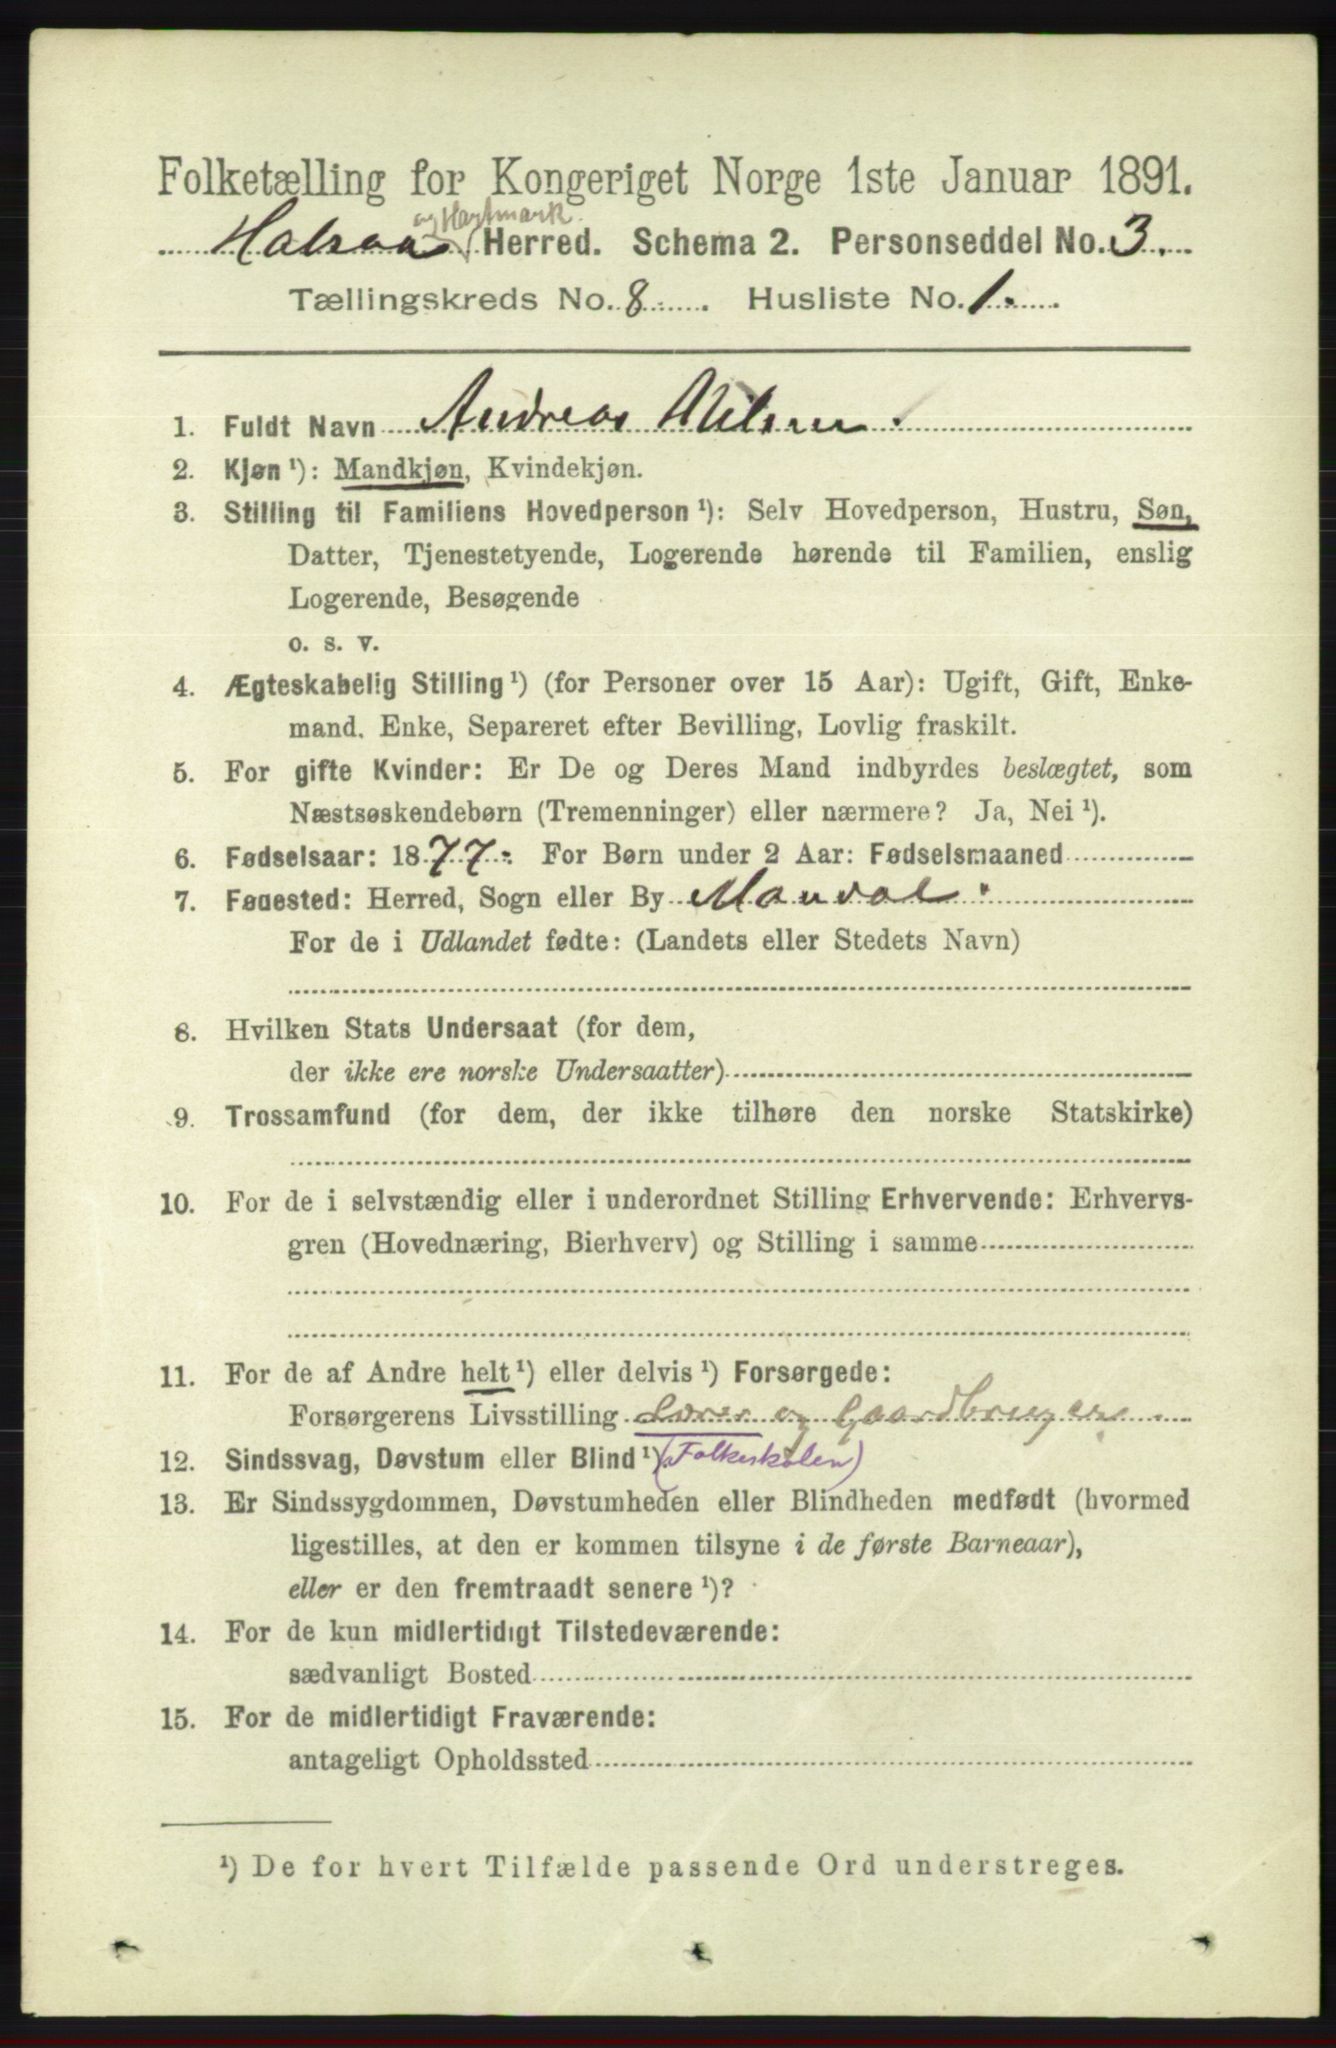 Folketælling for Kongeriget Norge 1ste Januar 1891.
og Hartmark
Halsaa Herred. Schema 2. Personseddel No. 3.
Tællingskreds No. 8. Husliste No. 1.
1. Fuldt Navn Andreas Nilsen.
2. Kjøn ¹): Mandkjøn, Kvindekjøn.
3. Stilling til Familiens Hovedperson ¹): Selv Hovedperson, Hustru, Søn,
Datter, Tjenestetyende, Logerende hørende til Familien, enslig
Logerende, Besøgende
o. s. v.
4. Ægteskabelig Stilling ¹) (for Personer over 15 Aar): Ugift, Gift, Enke-
mand, Enke, Separeret efter Bevilling, Lovlig fraskilt.
5. For gifte Kvinder: Er De og Deres Mand indbyrdes beslægtet, som
Næstsøskendebørn (Tremenninger) eller nærmere? Ja, Nei ¹).
6. Fødselsaar: 1877. For Børn under 2 Aar: Fødselsmaaned
7. Fødested: Herred, Sogn eller By Mandal.
For de i Udlandet fødte: (Landets eller Stedets Navn)
8. Hvilken Stats Undersaat (for dem,
der ikke ere norske Undersaatter)
9. Trossamfund (for dem, der ikke tilhøre den norske Statskirke)
10. For de i selvstændig eller i underordnet Stilling Erhvervende: Erhvervs-
gren (Hovednæring, Bierhverv) og Stilling i samme
11. For de af Andre helt ¹) eller delvis ¹) Forsørgede:
Forsørgerens Livsstilling Lærer og Gaardbruger.
12. Sindssvag, Døvstum eller Blind ¹) (Folkeskolen)
13. Er Sindssygdommen, Døvstumheden eller Blindheden medfødt (hvormed
ligestilles, at den er kommen tilsyne i de første Barneaar),
eller er den fremtraadt senere ¹)?
14. For de kun midlertidigt Tilstedeværende:
sædvanligt Bosted
15. For de midlertidigt Fraværende:
antageligt Opholdssted
¹) De for hvert Tilfælde passende Ord understreges.